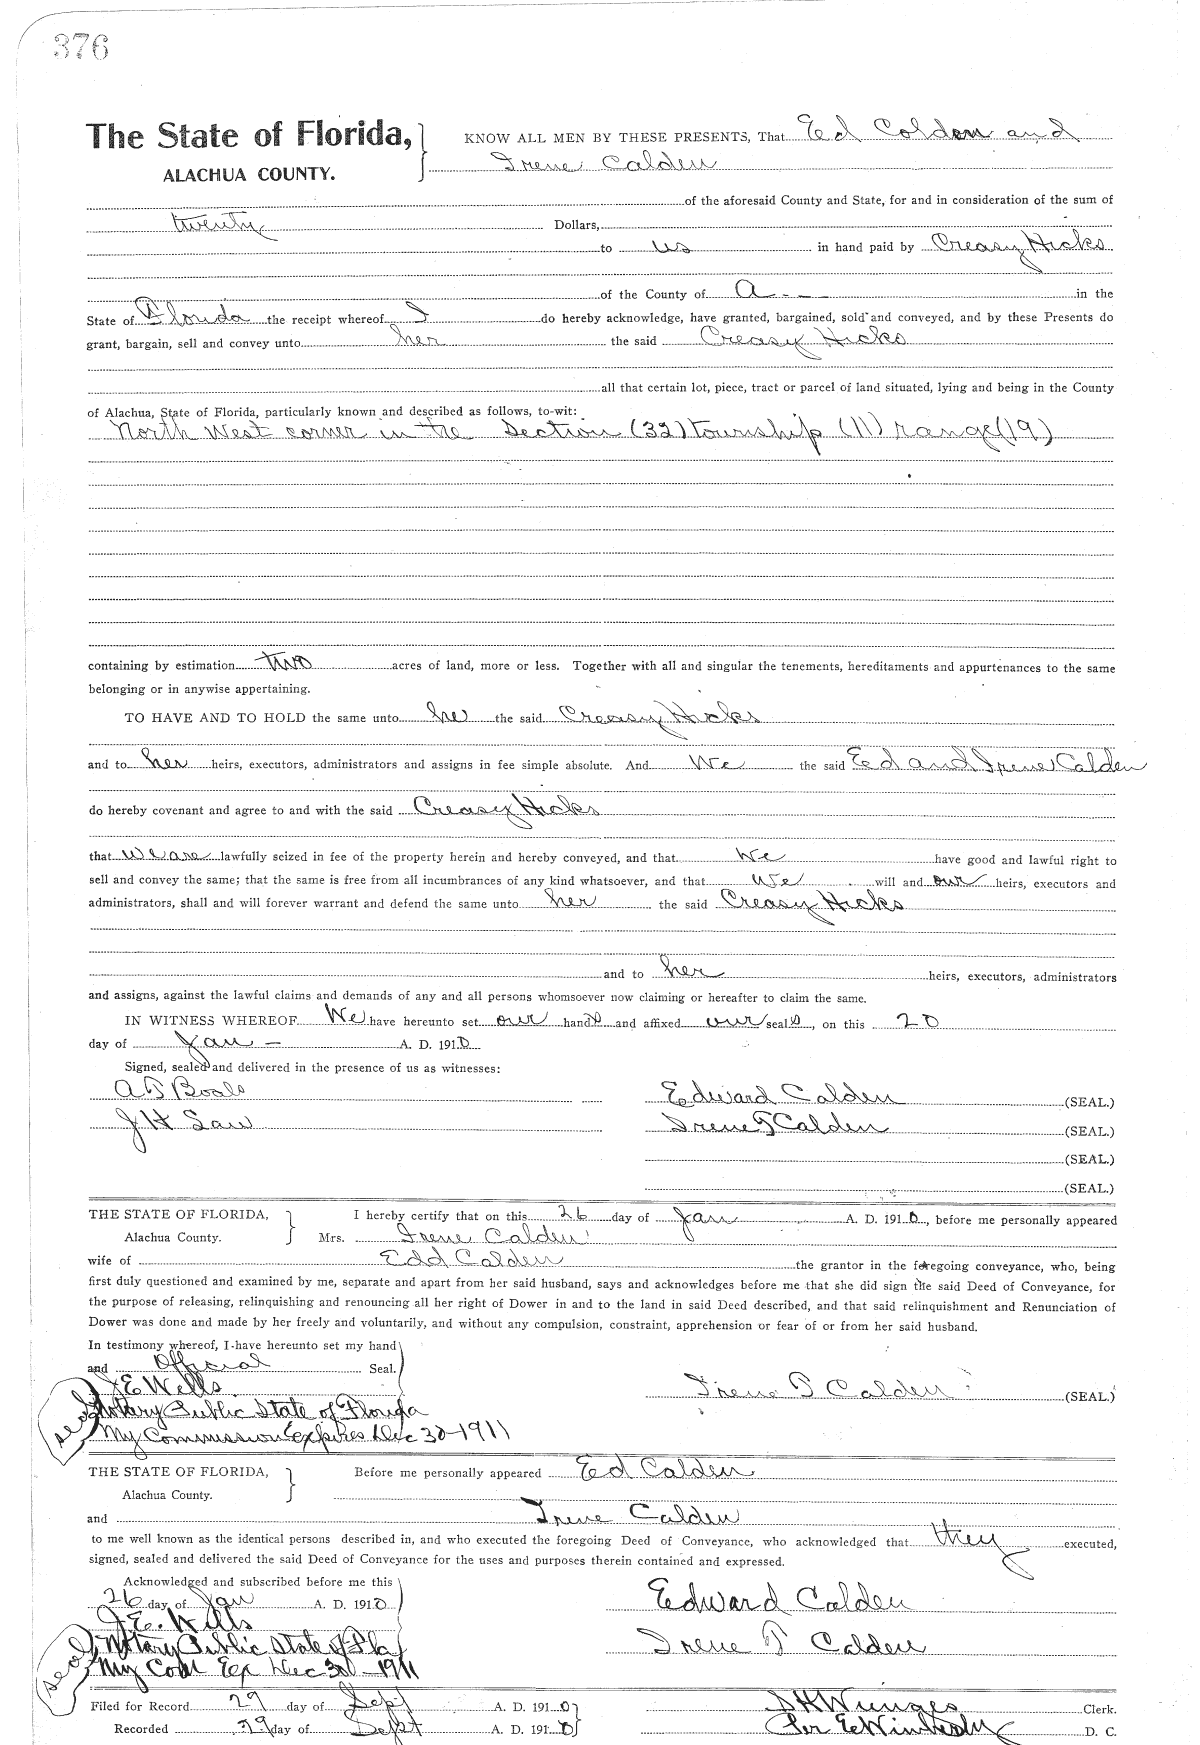 376
The State of Florida, KNOW ALL MEN BY THESE PRESENTS, That Ed Colden and
ALACHUA COUNTY. Irene Calden
of the aforesaid County and State, for and in consideration of the sum of
twenty Dollars,
to us in hand paid by Creasy Hicks
of the County of A - - in the
State of Florida the receipt whereof I do hereby acknowledge, have granted, bargained, sold and conveyed, and by these Presents do
grant, bargain, sell and convey unto her the said Creasy Hicks
all that certain lot, piece, tract or parcel of land situated, lying and being in the County
of Alachua, State of Florida, particularly known and described as follows, to-wit:
North West corner in the Section (32) township (11) range (19)
containing by estimation two acres of land, more or less. Together with all and singular the tenements, hereditaments and appurtenances to the same
belonging or in anywise appertaining.
TO HAVE AND TO HOLD the same unto her the said Creasy Hicks
and to her heirs, executors, administrators and assigns in fee simple absolute. And We the said Ed and Irene Calden
do hereby covenant and agree to and with the said Creasy Hicks
that we are lawfully seized in fee of the property herein and hereby conveyed, and that We have good and lawful right to
sell and convey the same; that the same is free from all incumbrances of any kind whatsoever, and that We will and our heirs, executors and
administrators, shall and will forever warrant and defend the same unto her the said Creasy Hicks
and to her heirs, executors, administrators
and assigns, against the lawful claims and demands of any and all persons whomsoever now claiming or hereafter to claim the same.
IN WITNESS WHEREOF We have hereunto set our hands and affixed our seals, on this 20
day of Jan - A. D. 1910
Signed, sealed and delivered in the presence of us as witnesses:
Edward Calden (SEAL.)
J H Saw Irene T Calden (SEAL.)
(SEAL.)
(SEAL.)
THE STATE OF FLORIDA, I hereby certify that on this 26 day of Jan A. D. 1910, before me personally appeared
Alachua County. Mrs. Irene Calden
wife of Edd Calden the grantor in the foregoing conveyance, who, being
first duly questioned and examined by me, separate and apart from her said husband, says and acknowledges before me that she did sign the said Deed of Conveyance, for
the purpose of releasing, relinquishing and renouncing all her right of Dower in and to the land in said Deed described, and that said relinquishment and Renunciation of
Dower was done and made by her freely and voluntarily, and without any compulsion, constraint, apprehension or fear of or from her said husband.
In testimony whereof, I have hereunto set my hand
and Official Seal.
J E Wells Irene T Calden (SEAL.)
Seal Notary Public State of Florida
My Commission Expires Dec 30-1911
THE STATE OF FLORIDA, Before me personally appeared Ed Calden
Alachua County.
and Irene Calden
to me well known as the identical persons described in, and who executed the foregoing Deed of Conveyance, who acknowledged that they executed,
signed, sealed and delivered the said Deed of Conveyance for the uses and purposes therein contained and expressed.
Acknowledged and subscribed before me this
26 day of Jan A. D. 1910 Edward Calden
J. E. Wells
Notary Public State of Fla Irene T Calden
Seal My Com Exp Dec 30-1911
Filed for Record 29 day of Sept A. D. 1910 Clerk.
Recorded 29 day of Sept A. D. 1910 Per D. C.